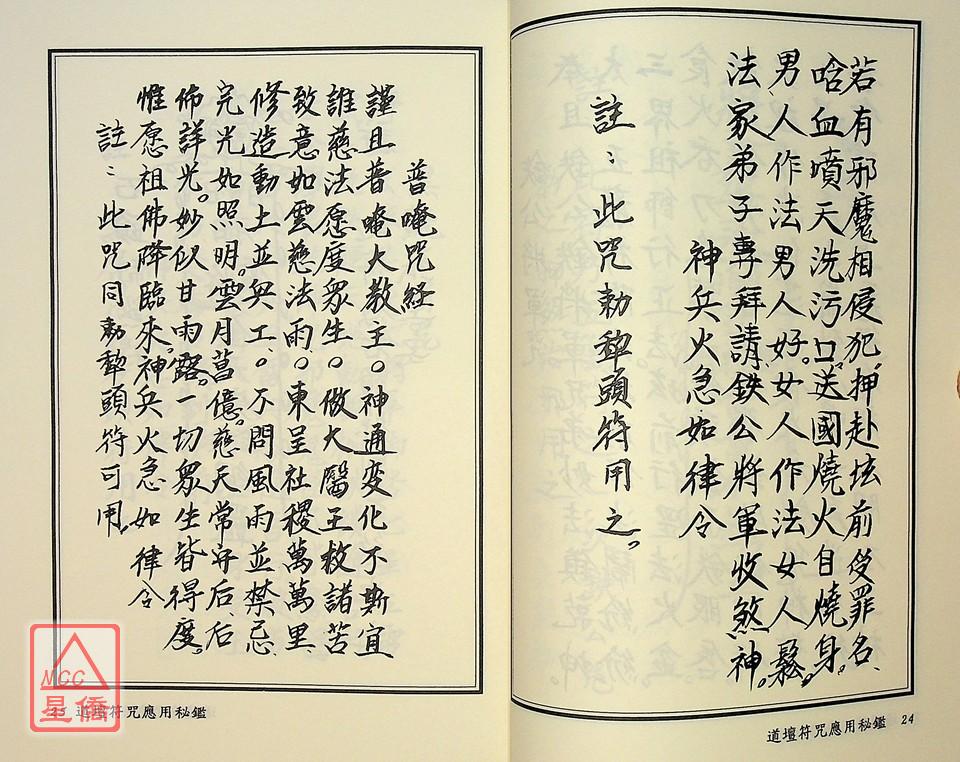 若有邪魔相侵犯,押赴坛前受罪名、
啥血噴天洗污口。送國燒火自燒身。
男人作法男人好。女人作法女人鬆。
法家弟子專拜請、鉄公將軍收煞神。
神兵火急如律令
註:此咒勅犂頭符用之。
道壇符咒應用秘鑑 24
普唵咒経
謹且普唵大教主。神通变化不斯宜
誰慈法愿度眾生。做大醫王救諸苦
致意如雲慈法雨、。東呈社稷萬萬里
修造動土並與工、。不問風雨並禁忌、
完光如照明。雲月菖億。慈天常守后、后
佈詳光。妙似甘雨露。一切眾生皆得度。
惟愿祖佛降臨來。神兵火急如律令
註:此咒同勅犂頭符可用。
25 道壇符咒應用秘鑑
MCC
星僑